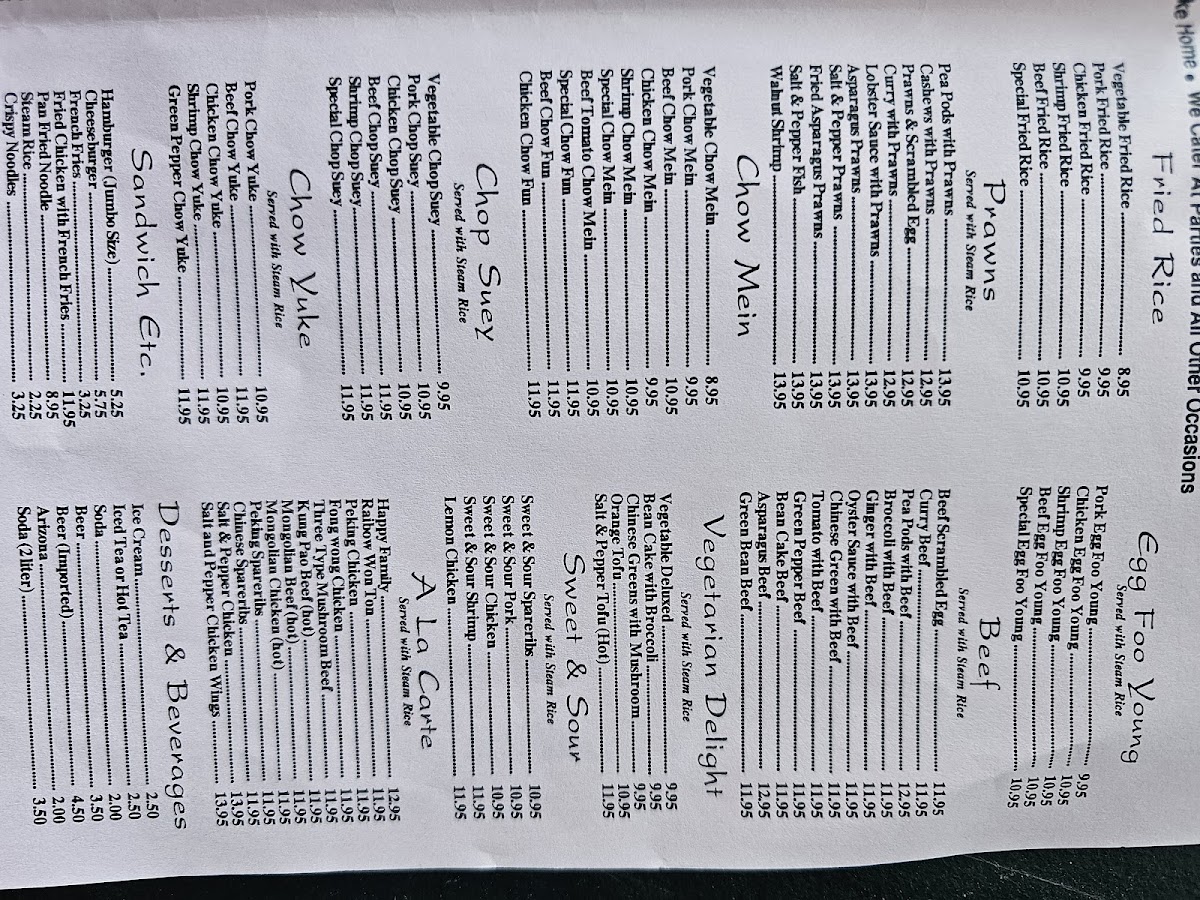 ke Home • We Cater All Parties and All Other Occasions
Fried Rice
Vegetable Fried Rice 8.95
Pork Fried Rice 9.95
Chicken Fried Rice 9.95
Shrimp Fried Rice 10.95
Beef Fried Rice 10.95
Special Fried Rice 10.95
Prawns
Served with Steam Rice
Pea Pods with Prawns 13.95
Cashews with Prawns 12.95
Prawns & Scrambled Egg 12.95
Curry with Prawns 12.95
Lobster Sauce with Prawns 13.95
Asparagus Prawns 13.95
Salt & Pepper Prawns 13.95
Fried Asparagus Prawns 13.95
Salt & Pepper Fish 13.95
Walnut Shrimp 13.95
Chow Mein
Vegetable Chow Mein 8.95
Pork Chow Mein 9.95
Beef Chow Mein 10.95
Chicken Chow Mein 9.95
Shrimp Chow Mein 10.95
Special Chow Mein 10.95
Beef Tomato Chow Mein 10.95
Special Chow Fun 11.95
Beef Chow Fun 11.95
Chicken Chow Fun 11.95
Chop Suey
Served with Steam Rice
Vegetable Chop Suey 9.95
Pork Chop Suey 10.95
Chicken Chop Suey 10.95
Beef Chop Suey 11.95
Shrimp Chop Suey 11.95
Special Chop Suey 11.95
Chow Yuke
Served with Steam Rice
Pork Chow Yuke 10.95
Beef Chow Yuke 11.95
Chicken Chow Yuke 10.95
Shrimp Chow Yuke 11.95
Green Pepper Chow Yuke 11.95
Sandwich Etc.
Hamburger (Jumbo Size) 5.25
Cheeseburger 5.75
French Fries 3.25
Fried Chicken with French Fries 11.95
Pan Fried Noodle 8.95
Steam Rice 2.25
Crispy Noodles 3.25
Egg Foo Young
Served with Steam Rice
Pork Egg Foo Young 9.95
Chicken Egg Foo Young 10.95
Shrimp Egg Foo Young 10.95
Beef Egg Foo Young 10.95
Special Egg Foo Young 10.95
Beef
Served with Steam Rice
Beef Scrambled Egg 11.95
Curry Beef 11.95
Pea Pods with Beef 12.95
Broccoli with Beef 11.95
Ginger with Beef 11.95
Oyster Sauce with Beef 11.95
Chinese Green with Beef 11.95
Tomato with Beef 11.95
Green Pepper Beef 11.95
Bean Cake Beef 11.95
Asparagus Beef 12.95
Green Bean Beef 11.95
Vegetarian Delight
Served with Steam Rice
Vegetable Deluxed 9.95
Bean Cake with Broccoli 9.95
Chinese Greens with Mushroom 9.95
Orange Tofu 10.95
Salt & Pepper Tofu (Hot) 11.95
Sweet & Sour
Served with Steam Rice
Sweet & Sour Spareribs 10.95
Sweet & Sour Pork 10.95
Sweet & Sour Chicken 10.95
Sweet & Sour Shrimp 11.95
Lemon Chicken 11.95
A La Carte
Served with Steam Rice
Happy Family 12.95
Raibow Won Ton 11.95
Peking Chicken 11.95
Fong wong Chicken 11.95
Three Type Mushroom Beef 11.95
Kung Pao Beef (hot) 11.95
Mongolian Beef (hot) 11.95
Mongolian Chicken (hot) 11.95
Peking Spareribs 11.95
Chinese Spareribs 11.95
Salt & Pepper Chicken 13.95
Salt and Pepper Chicken Wings 13.95
Desserts & Beverages
Ice Cream 2.50
Iced Tea or Hot Tea 2.50
Soda 2.00
Beer 3.50
Beer (Imported) 4.50
Arizona 2.00
Soda (2 liter) 3.50